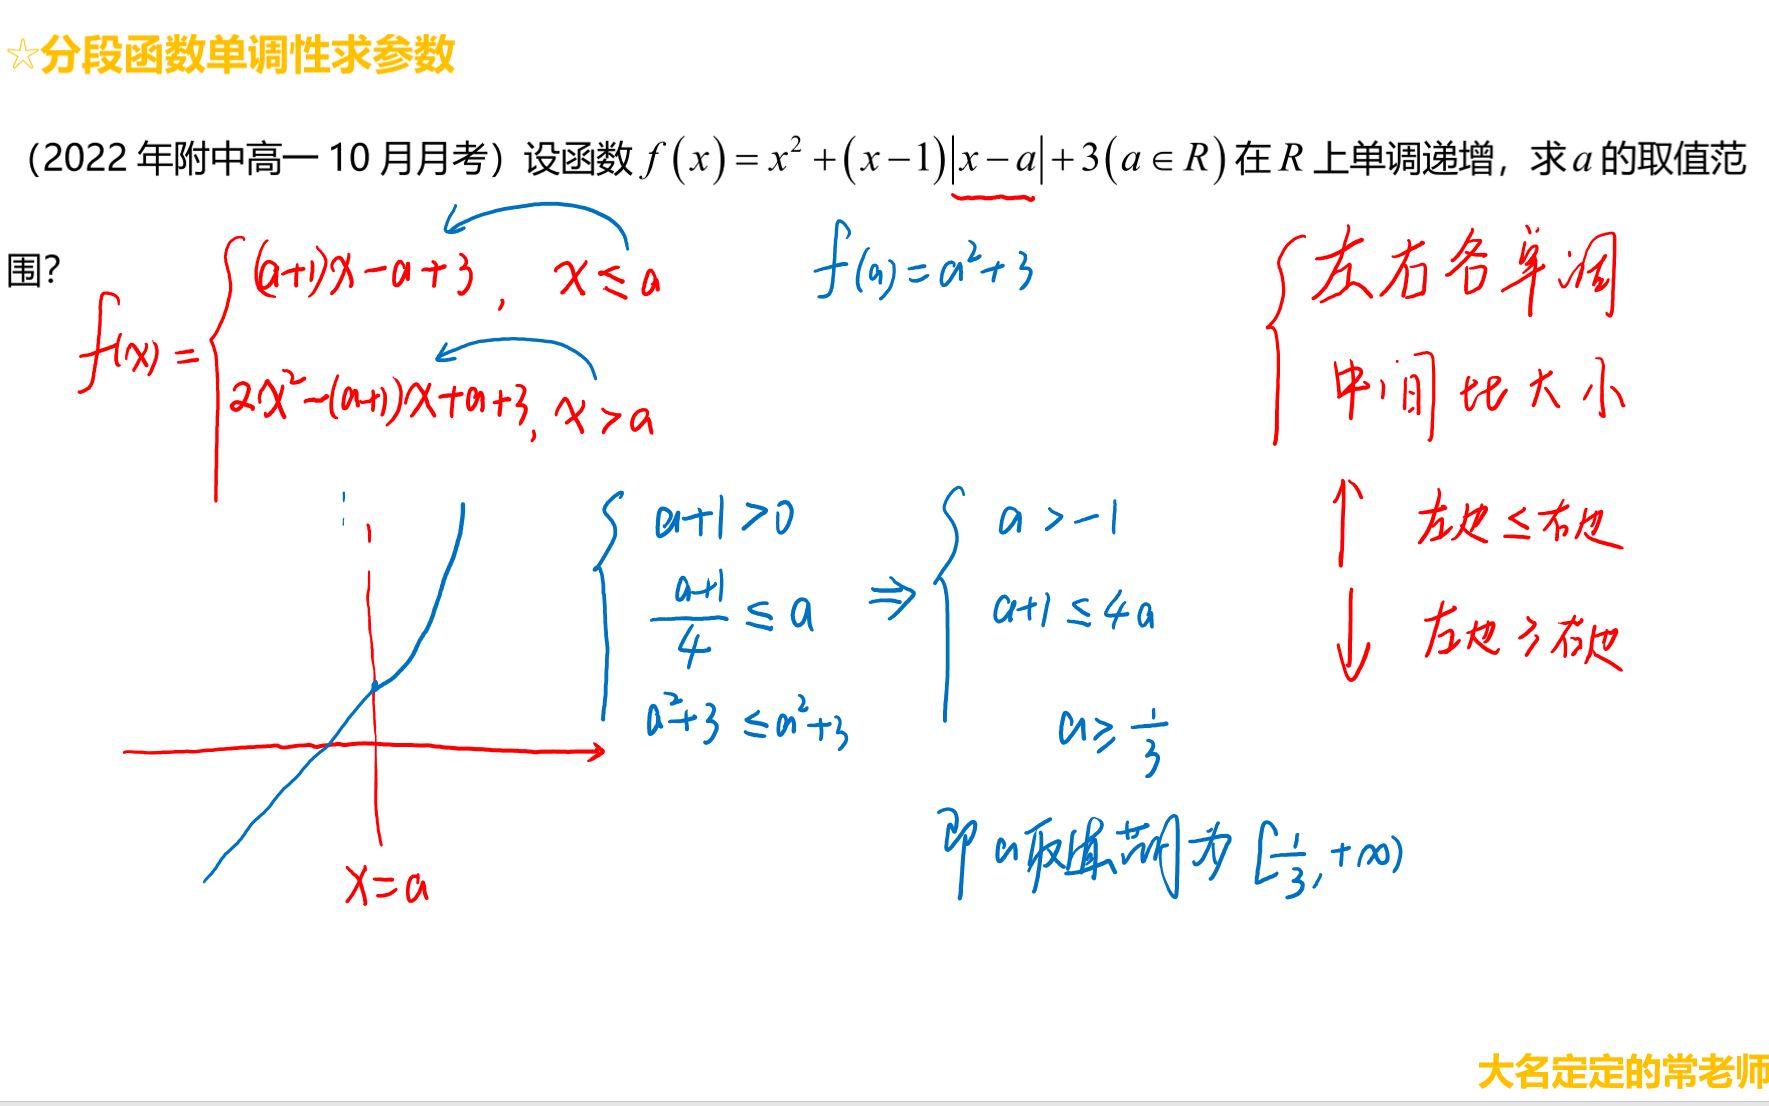 ☆分段函数单调性求参数
（2022 年附中高一 10 月月考）设函数 f(x)=x²+(x−1)|x−a|+3(a∈R) 在 R 上单调递增，求 a 的取值范
围？
f(x)=
(a+1)x−a+3, x≤a
2x²−(a+1)x+a+3, x>a
f(a)=a²+3
左右各单调
中间比大小
↑ 左边≤右边
↓ 左边≥右边
x=a
a+1>0
(a+1)/4≤a
a²+3≤a²+3
⇒
a>−1
a+1≤4a
a≥1/3
即a取值范围为[1/3,+∞)
大名定定的常老师